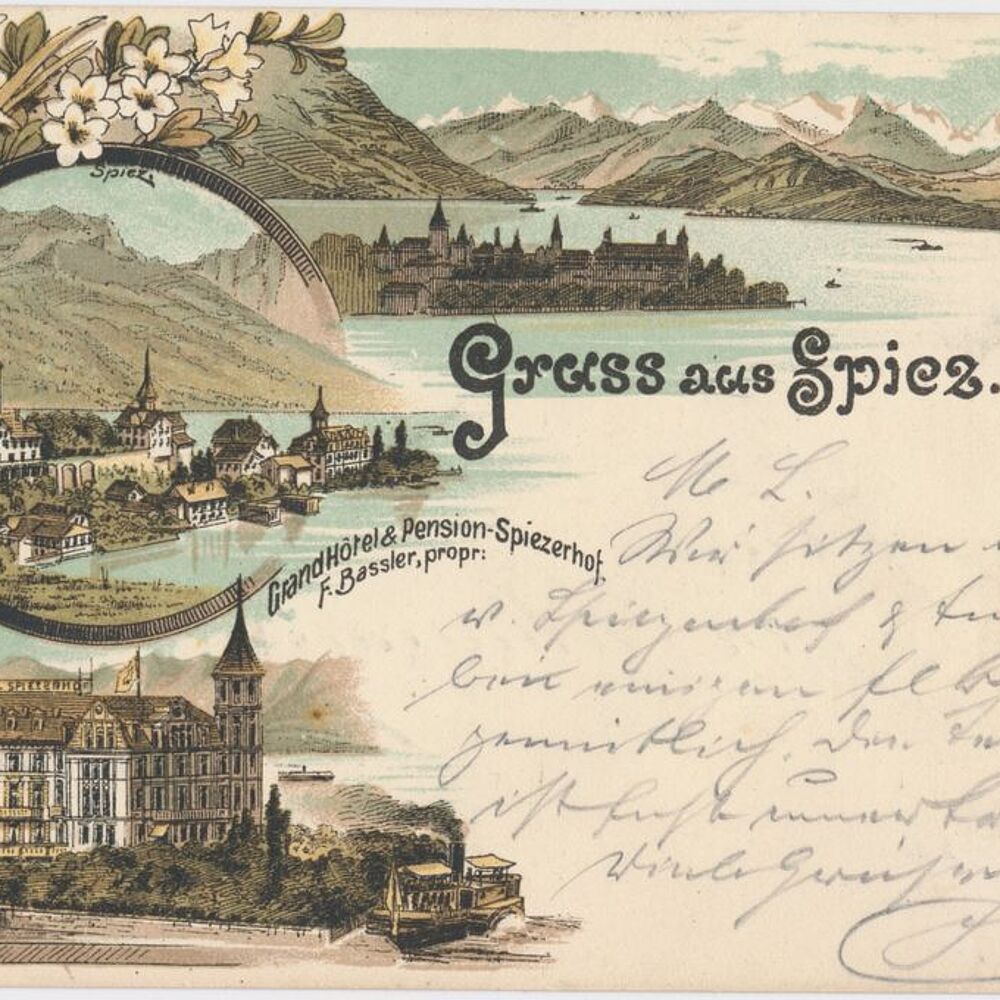 Spiez.
Gruss aus Spiez.
Grand Hôtel & Pension-Spiezerhof,
F. Bassler, propr:
SPIEZERHOF
M. L.
Wir sitzen
v. Spiezerhof &
bei einigen
gemütlich. Der
ist fast
Viele Grüsse